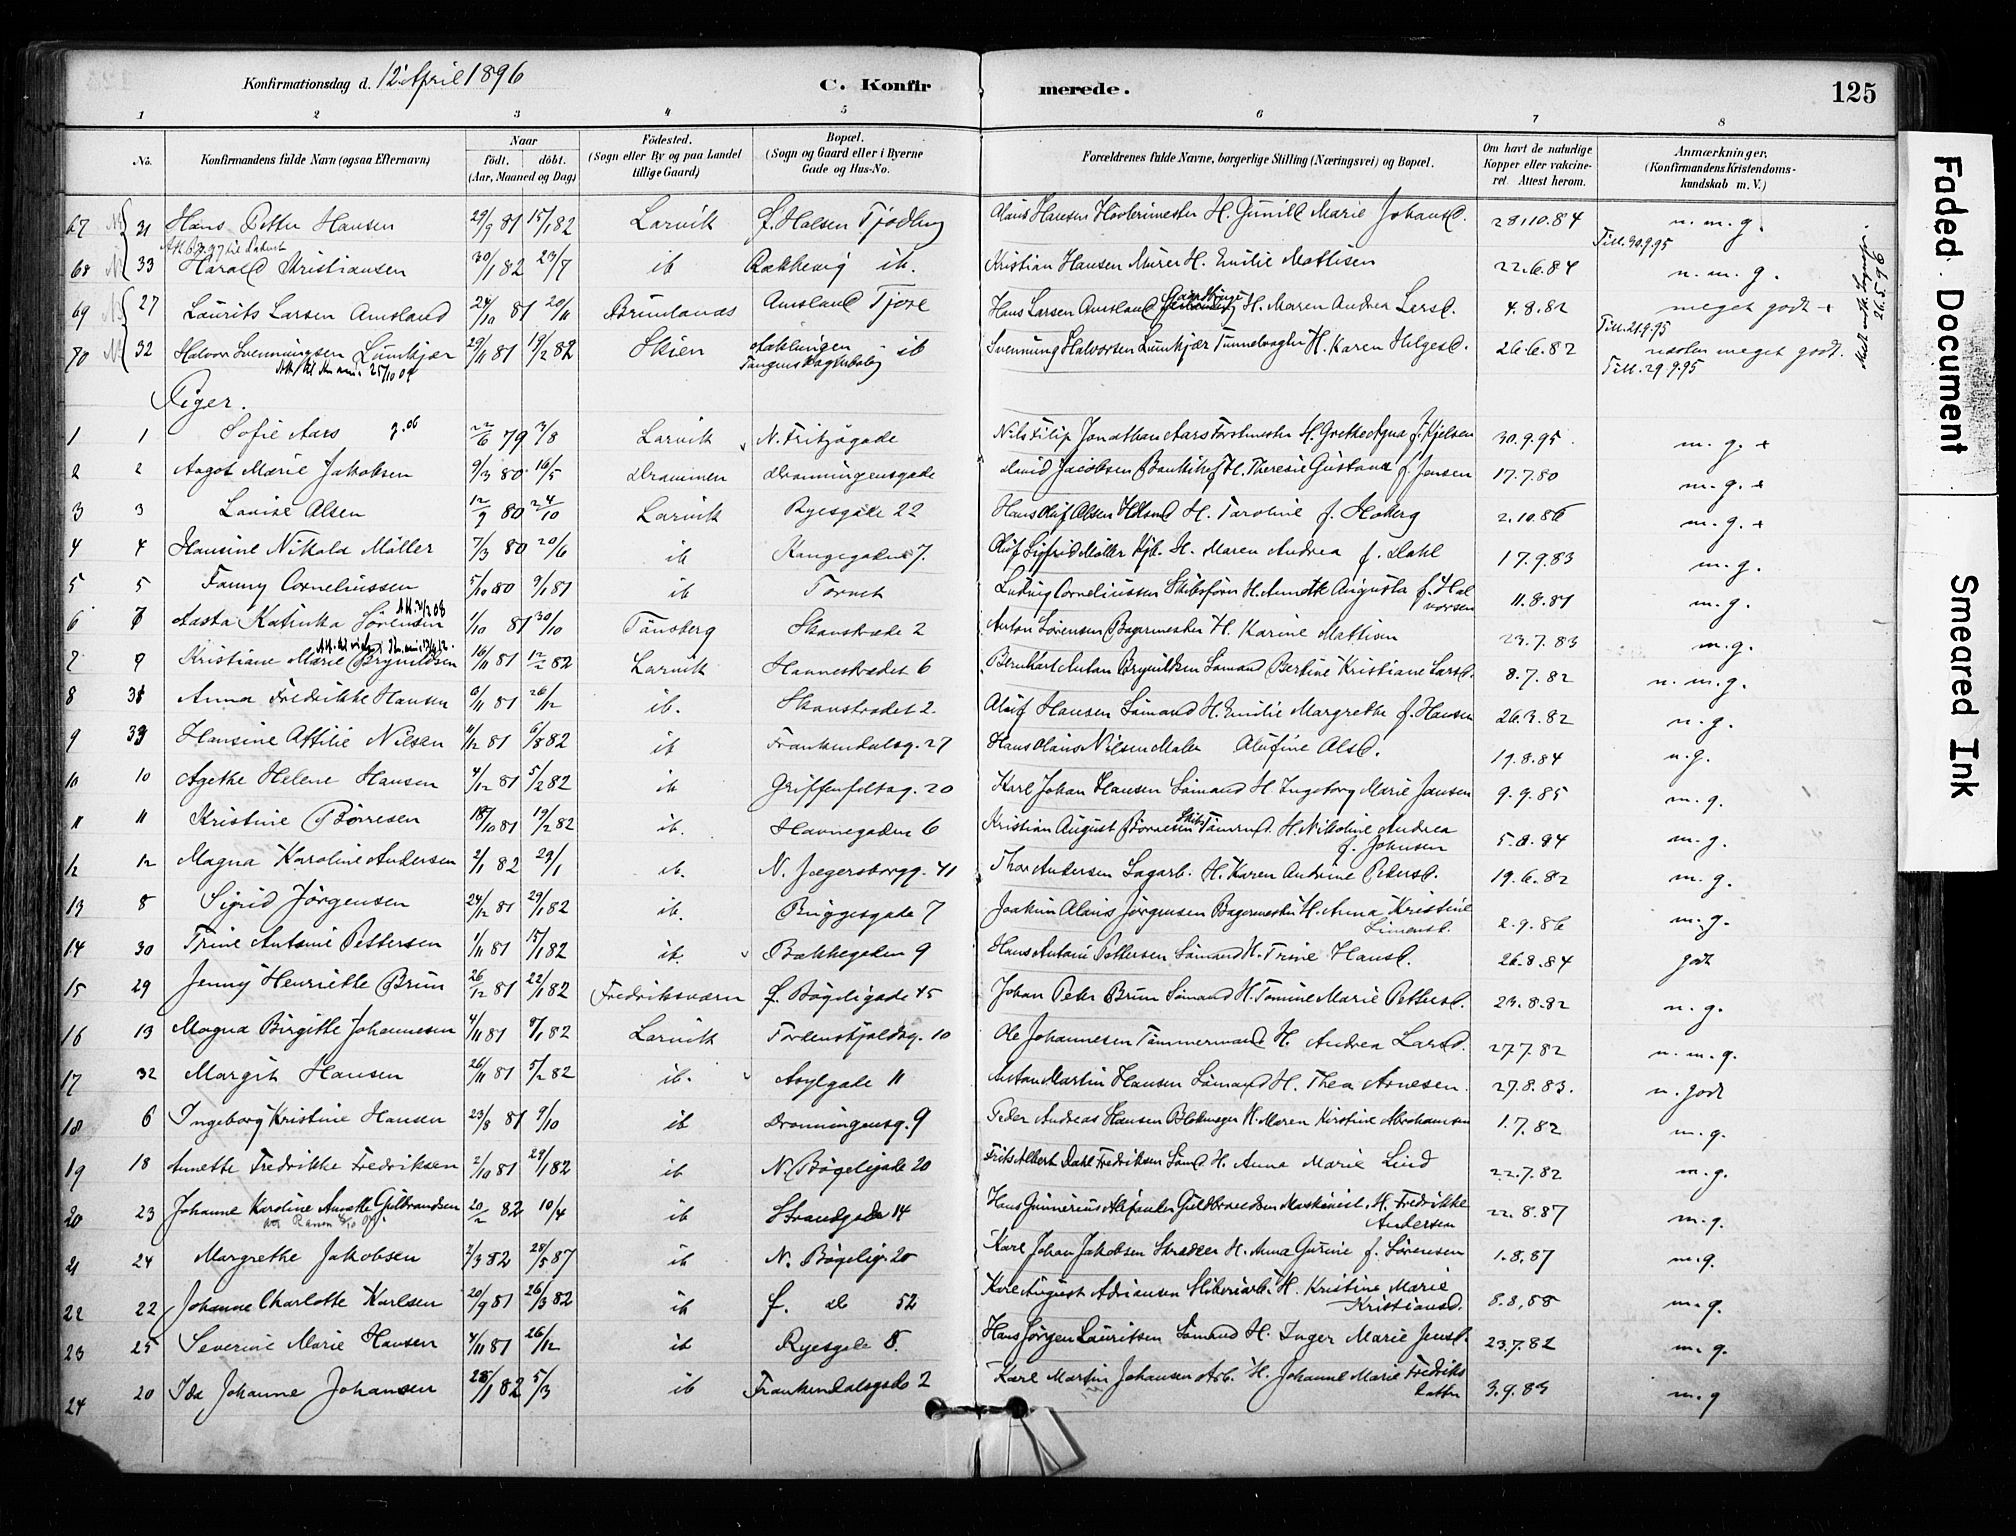 Konfirmationsdag d. 12 April 1896 C. Konfirmerede. 125
1 2 3 4 5 6 7 8
No. Konfirmandens fulde Navn (ogsaa Efternavn) Naar født. døbt. (Aar, Maaned og Dag) Fødested. (Sogn eller By og paa Landet tillige Gaard) Bopæl. (Sogn og Gaard eller i Byerne Gade og Hus-No. Forældrenes fulde Navne, borgerlige Stilling (Næringsvei) og Bopæl. Om havt de naturlige Kopper eller vakcineret. Attest herom. Anmærkninger, (Konfirmandens Kristendomskundskab m. V.)
67 31 Hans Petter Hansen 29/9 81 15/1 82 Larvik Tjodling H. Gunild Marie Johansd. 28.10.84 n. m. g.
Till. 30.9.95
68 33 Harald Kristiansen 30/1 82 23/7 ib ib. Kristian Hansen Murer H. Emilie Mattisen 22.6.84 n. m. g.
69 27 Laurits Larsen Amsland 24/10 81 20/11 Brunlanæs Amsland Tjose Hans Larsen Amsland H. Maren Andrea Larsd. 4.8.82 meget godt +
Till. 21.9.95
70 32 Halvor Svenningsen Lumkjær 29/11 81 19/2 82 Skien ib Svenning Halvorsen Lumkjær H. Karen Helgesd. 26.6.82 næsten meget godt.
Till. 29.9.95
Piger.
1 1 Sofie Aars 22/6 79 3/8 Larvik N. Fritzøgade Nils Filip Jonathan Aars Forstmester H. Grethe Agna f. Kjelsen 30.9.95. m. g. +
2 2 Aagot Marie Jakobsen 9/3 80 16/5 Drammen Dronningensgade David Jacobsen H. Theresie Gustava f. Jensen 17.7.80 m. g. +
3 3 Lovise Olsen 12/9 80 24/10 Larvik Ryesgade 22 Hans Oluf Olsen H. Taroline f. Hoberg 2.10.86 m. g. +
4 4 Hansine Nikola Möller 7/3 80 20/6 ib Kongegaden 7. Oluf Sigfrid Möller Kjb. H. Maren Andrea f. Dahl 17.9.83 m. g.
5 5 Fanny Corneliussen 5/10 80 9/1 81 ib Torvet Ludvig Corneliussen Skibsfører H. Annette Augusta f. Halvorsen 11.8.81 m. g.
6 7 Aasta Katinka Sørensen 1/10 81 30/10 Tönsberg Skanstræde 2 Anton Sørensen Bagermester H. Karine Mattisen 23.7.83 m. g.
7 9 Kristiane Marie Brynildsen 16/11 81 12/2 82 Larvik Havnestrædet 6 Bernhart Anton Brynildsen Sömand Bertine Kristiane Larsd. 8.7.82 n. m. g.
8 31 Anna Fredrikke Hansen 6/11 81 26/12 ib. Skanstrædet 2. Oluf Hansen Sömand H. Emilie Margrethe f. Hansen 26.3.82 n. g.
9 33 Hansine Attilie Nilsen 11/12 81 6/8 82 ib Frankendalsg. 27 Hans Olaus Nilsen Maler Olufine Olsd. 19.8.84 n. g.
10 10 Agethe Helene Hansen 4/12 81 5/2 82 ib Griffenfeldsg. 20 Karl Johan Hansen Sömand H. Ingeborg Marie Jansen 9.9.85 m. g.
11 11 Kristine Börresen 18/10 81 19/2 82 ib. Havnegaden 6 Kristian August Börresen Skibs Tömrmd. H. Nikoline Andrea f. Johnsen 5.8.84 m. g.
12 12 Magna Karoline Andersen 2/1 82 29/1 ib. N. Jægersborgg. 41 Thor Andersen Sagarb. H. Karen Andrine Petersd. 19.6.82 m. g.
13 8 Sigrid Jörgensen 24/12 81 29/1 82 ib. Bryggegade 7 Joakim Olaus Jörgensen Bagermester H. Anna Kristine Simensd. 2.9.86 m. g.
14 30 Trine Antonie Pettersen 1/11 81 15/1 82 ib. Bakkegaden 9 Hans Antoni Pettersen Sömand H. Trine Hansd. 26.8.84 godt
15 29 Jenny Henriette Brun 26/12 81 22/1 82 Fredriksværn f. Bögeligade 45 Johan Peter Brun Sömand H. Tomine Marie Pettersd. 23.8.82 n. g.
16 13 Magna Birgitte Johannesen 4/11 81 8/1 82 Larvik Tordenskjoldsg. 10 Ole Johannesen Tömmermand H. Andrea Larsd. 27.7.82 n. m. g.
17 32 Margit Hansen 26/11 81 5/2 82 ib. Asylgade 11 Anton Martin Hansen Sömand H. Thea Arnesen. 27.8.83. n. godt
18 6 Ingeborg Kristine Hansen 23/8 81 9/10 ib Dronningensg. 9 Peder Andreas Hansen H. Maren Kirstine Abrahamsen 1.7.82 m. g.
19 18 Annette Fredrikke Fredriksen 2/10 81 29/1 82 ib N. Bögeligade 20 Frits Albert Dahl Fredriksen Sömd. H. Anne Marie Lind 22.7.82 m. g.
20 23 Johanne Karoline Annette Guldbrandsen 20/2 82 10/4 ib Strandgade 14 Hans Gunnerius Alexander Guldbrandsen Maskinist. H. Fredrikke Andersen 22.8.87 m. g.
21 24 Margrethe Jakobsen 2/3 82 28/5 87 ib N. Bögelig. 20 Karl Johan Jakobsen Skræder H. Anna Gurine f. Sörensen 1.8.87 m. g.
22 22 Johanne Charlotte Karlsen 20/9 81 26/3 82 ib f. do 52 Karl August Adriansen H. Kristine Marie Kristiansd. 8.8.88 m. g.
23 25 Severine Marie Hansen 4/11 81 26/12 ib Ryesgade 8. Hans Jörgen Lauritsen Sömand H. Inger Marie Jensd. 23.7.82 m. g.
24 20 Ida Johanne Johansen 28/1 82 5/3 ib Frankendalsgade 2 Karl Martin Johansen Arb. H. Johanne Marie Fredriksdatter 3.9.83 m. g
Faded Document
Smeared Ink